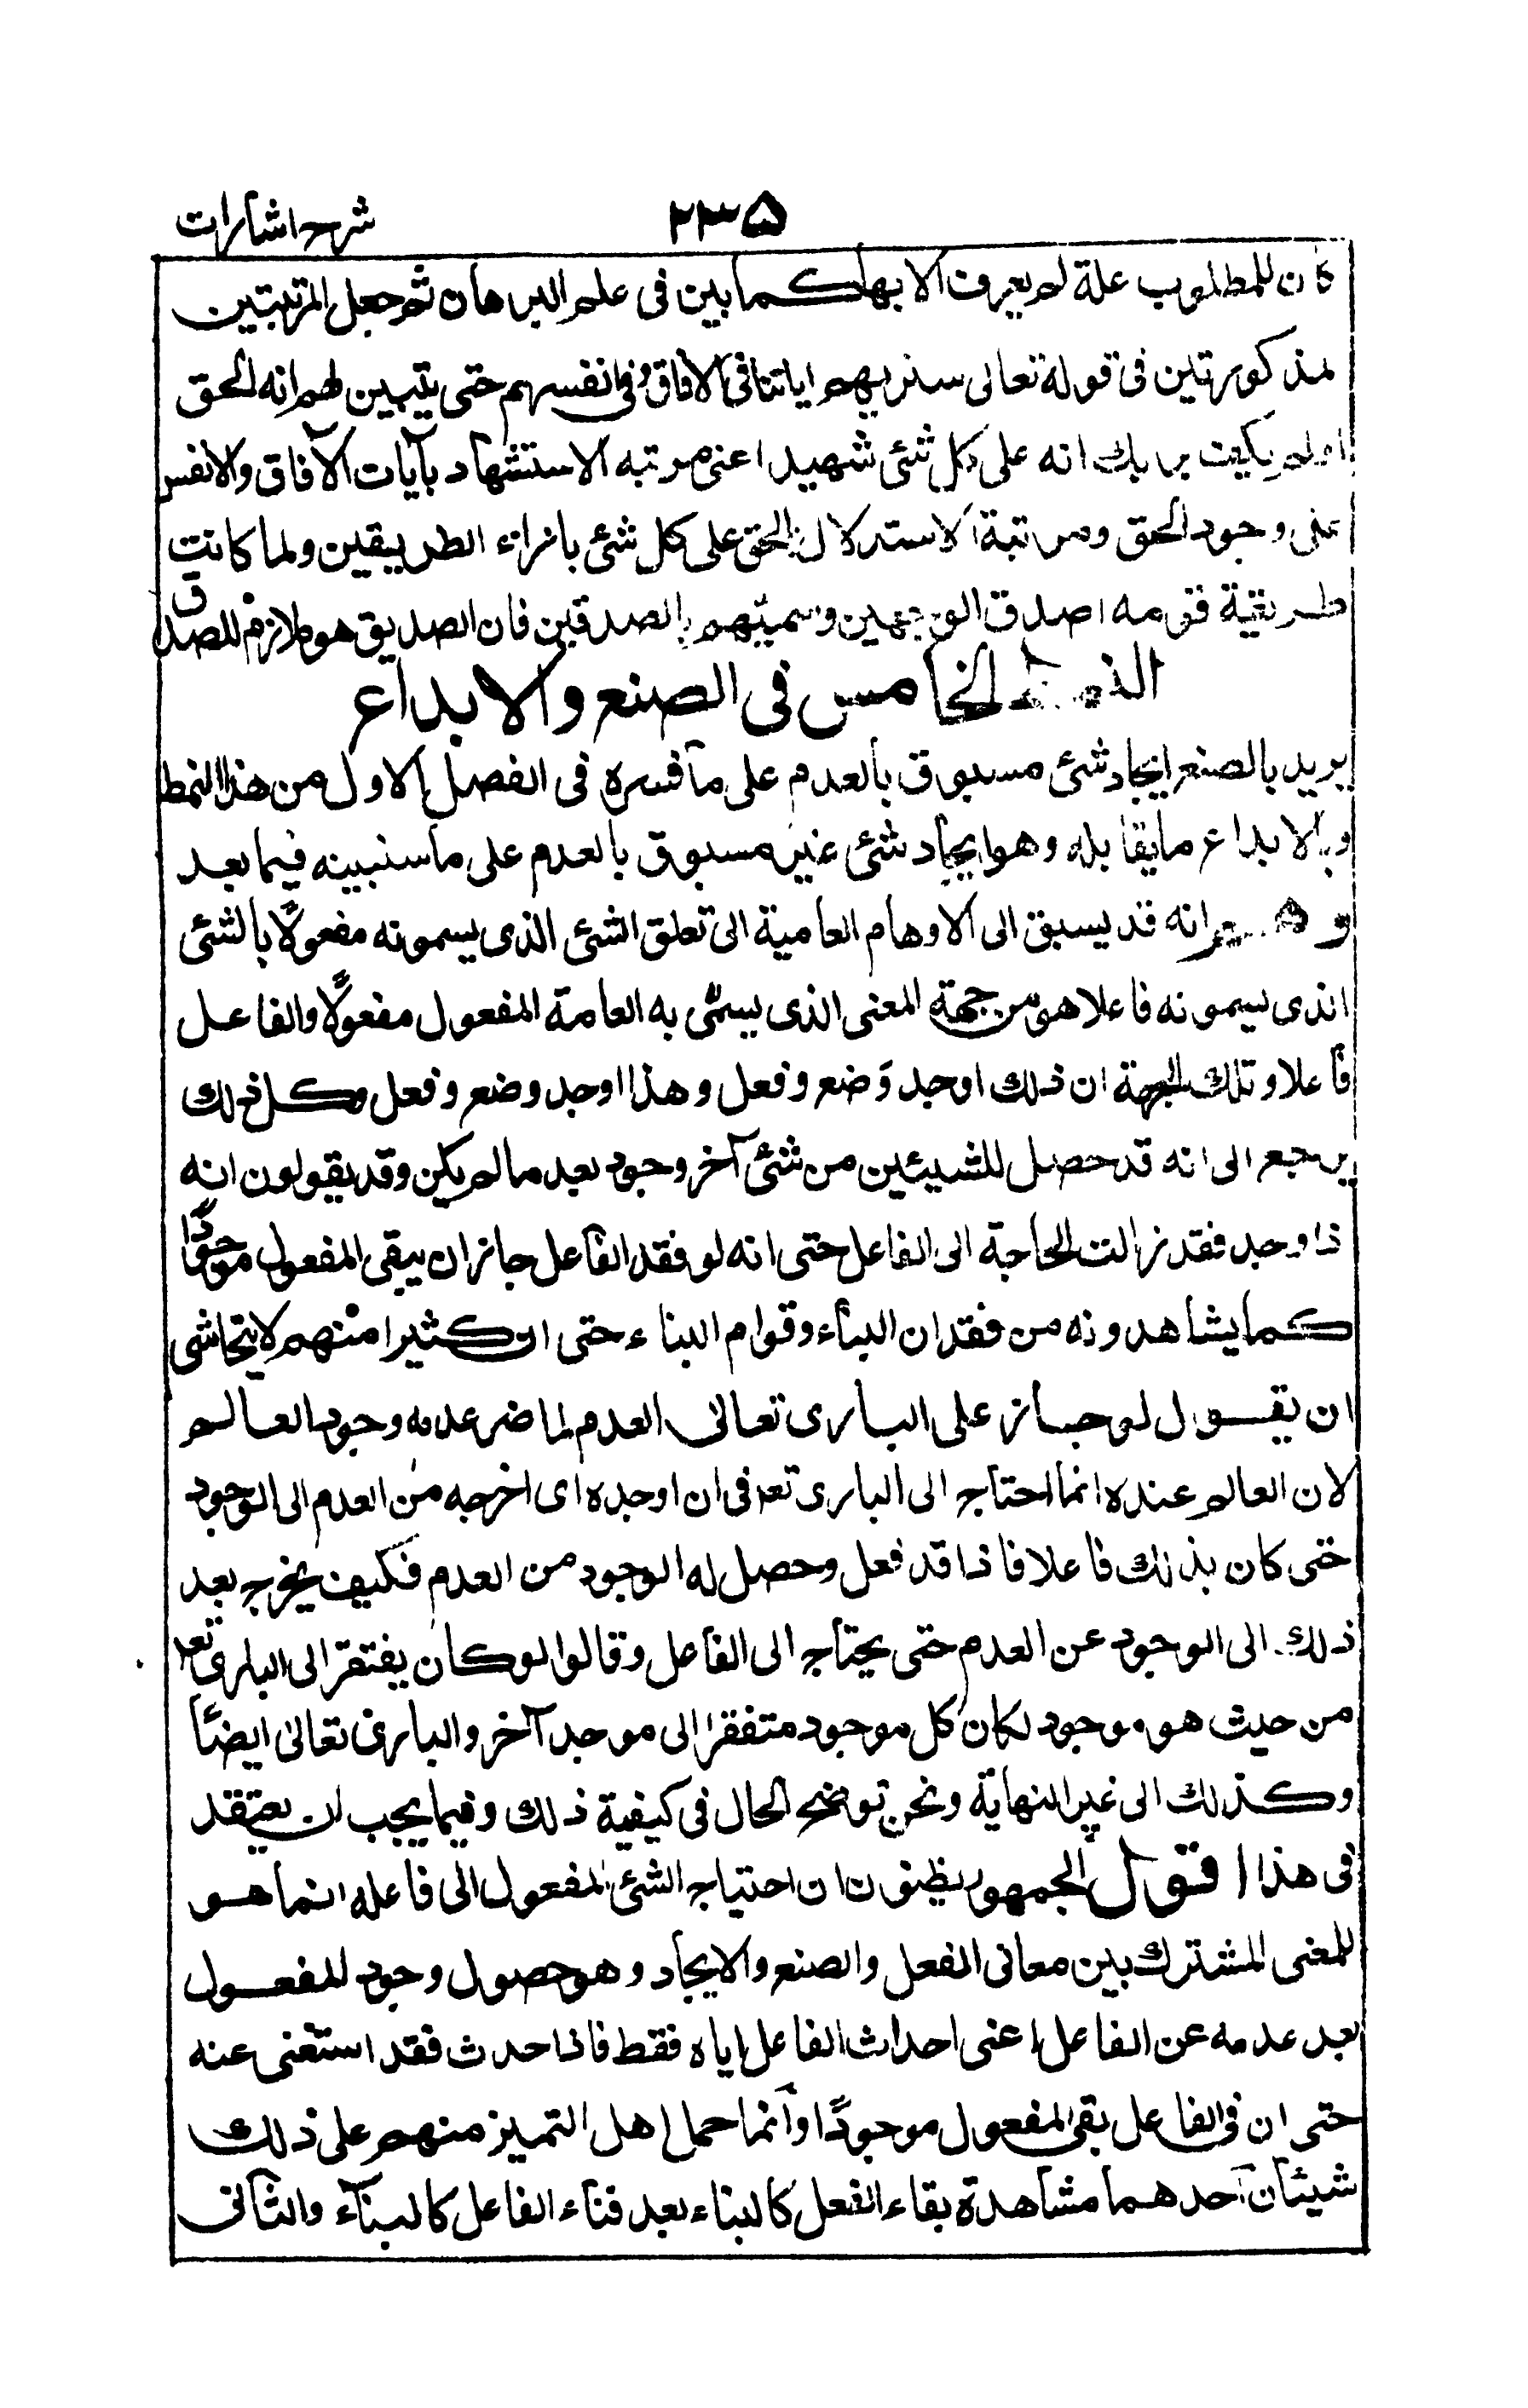 شرح اشارات
۲۳۵
كان للمطلوب علة لم يعرف الا بها كما بين فى علم البرهان ثم جعل المرتبتين
لمذكورتين فى قولة تعالى سنريهم اياتنا فى الآفاق وفى انفسهم حتى يتبين لهم انه الحق
اولم يكف بربك انه على كل شئ شهيد اعنى مرتبه الاستشهاد بآيات الآفاق والانفس
على وجود الحق ومرتبة الاستدلال بالحق على كل شئ بازاء الطريقين ولما كانت
طريقية قومه اصدق الوجهين وسميتهم بالصدقين فان الصديق هو ملازم للصدق
النمط الخامس فى الصنع والابداع
يريد بالصنع ايجاد شئ مسبوق بالعدم على ما فسره فى الفصل الاول من هذا النمط
وبالابداع ما يقابله وهو ايجاد شئ غير مسبوق بالعدم على ما سنبينه فيما بعد
وهم انه قد يسبق الى الاوهام العامية الى تعلق الشئ الذى يسمونه مفعولًا بالشئى
الذى يسمونه فاعلا هو من جهة المعنى الذى يسمّى به العامة المفعول مفعولًا والفاعل
فاعلا وتلك الجهة ان ذلك اوجد وَضع وفعل وهذا اوجد وضع وفعل وكل ذلك
يرجع الى انه قد حصل للشيئين من شئ آخر وجود بعد ما لم يكن وقد يقولون انه
ذا وجد فقد زالت الحاجة الى الفاعل حتى انه لو فقد الفاعل جاز ان يبقى المفعول موجودًا
كما يشاهدونه من فقدان البناء وقوام البناء حتى ان كثيرا منهم لا يتحاشى
ان يقول لو جاز على البارى تعالى العدم لما ضر عدمه وجود العالم
لان العالم عنده انما احتاج الى البارى تعه فى ان اوجده اى اخرجه من العدم الى الوجود
حتى كان بذلك فاعلا فاذا قد فعل وحصل له الوجود من العدم فكيف يخرج بعد
ذلك الى الوجود عن العدم حتى يحتاج الى الفاعل وقالوا لو كان يفتقر الى البارى تعه
من حيث هو موجود لكان كل موجود متفقرا الى موجد آخر والبارى تعالى ايضًا
وكذلك الى غير النهاية ونحن نوضح الحال فى كيفية ذلك وفيما يجب ان يعتقد
فى هذا اقول الجمهور يظنون ان احتياج الشئ المفعول الى فاعله انما هو
للمعنى المشترك بين معانى الفعل والصنع والايجاد وهو حصول وجود للمفعول
بعد عدمه عن الفاعل اعنى احداث الفاعل اياه فقط فاذا حدث فقد استغنى عنه
حتى ان فى الفاعل بقى المفعول موجودًا وانما حمل اهل التميز منهم على ذلك
شيئان احدهما مشاهدة بقاء الفعل كالبناء بعد فناء الفاعل كالبنآء والثانى